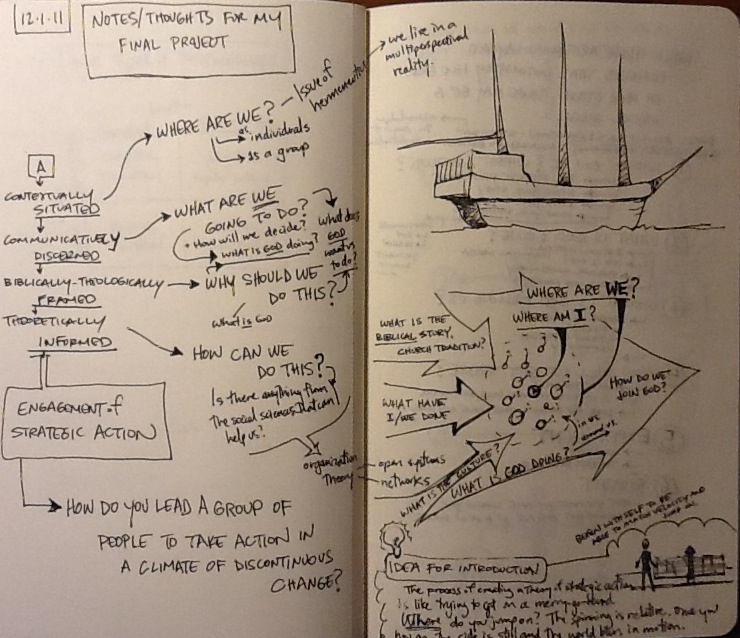 12.1.11
NOTES/THOUGHTS FOR MY
FINAL PROJECT
WHERE ARE WE?
Issue of
hermeneutics
as
individuals
as a group
A
CONTEXTUALLY
SITUATED
COMMUNICATIVELY
DISCERNED
BIBLICALLY-THEOLOGICALLY
FRAMED
THEORETICALLY
INFORMED
ENGAGEMENT of
STRATEGIC ACTION
WHAT ARE WE
GOING TO DO?
• How will we decide?
WHAT IS GOD doing?
what does
GOD
want us
to do?
WHY SHOULD WE
DO THIS?
What is GOD
HOW CAN WE
DO THIS?
Is there anything from
the social sciences that can
help us?
organization
Theory
open systems
networks
HOW DO YOU LEAD A GROUP OF
PEOPLE TO TAKE ACTION IN
A CLIMATE OF DISCONTINUOUS
CHANGE?
we live in a
multiperspectival
reality.
WHERE ARE WE?
WHERE AM I?
WHAT IS THE
BIBLICAL STORY,
CHURCH TRADITION?
WHAT HAVE
I/WE DONE
HOW DO WE
JOIN GOD?
in us
around us
WHAT IS THE CULTURE?
WHAT IS GOD DOING?
BEGIN WITH SELF TO BE
ABLE TO MATCH VELOCITY AND
JUMP ON.
IDEA FOR INTRODUCTION
The process of creating a theory of strategic action
is like trying to get on a merry-go-round.
Where do you jump on? The spinning is relative. Once you
the ride is still and the world blurs in motion.